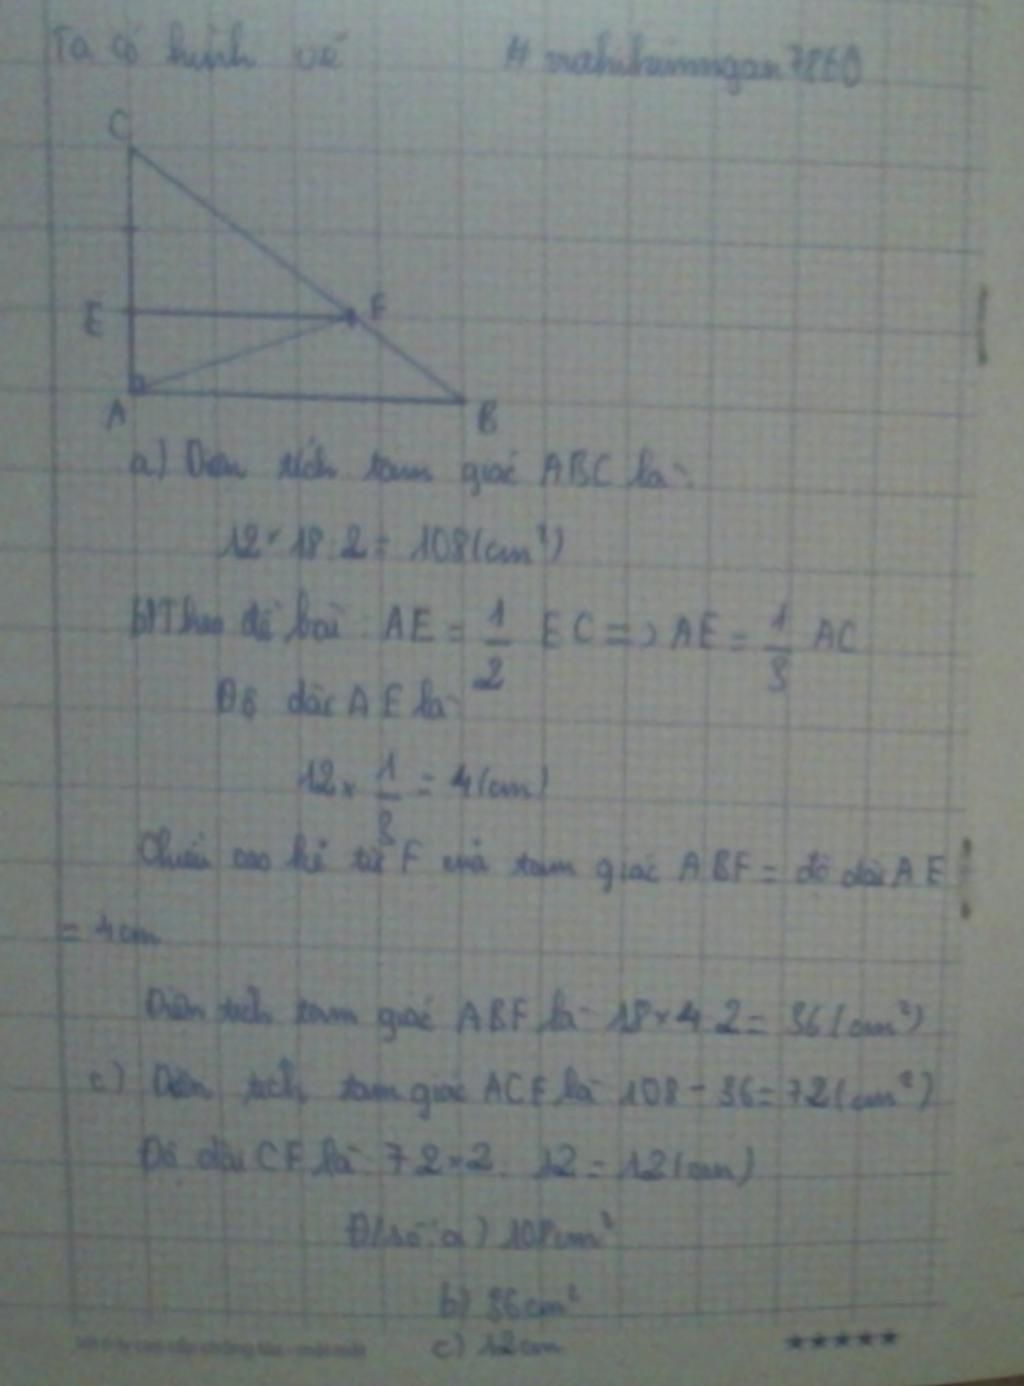 Ta có hình vẽ
C
E F
A B
a) Diện tích tam giác ABC là:
12 × 18 : 2 = 108 (cm²)
b) Theo đề bài: AE = 1/2 EC => AE = 1/3 AC
Độ dài AE là:
12 × 1/3 = 4 (cm)
Chiều cao kẻ từ F của tam giác ABF = độ dài AE
= 4cm
Diện tích tam giác ABF là: 18 × 4 : 2 = 36 (cm²)
c) Diện tích tam giác ACF là: 108 - 36 = 72 (cm²)
Độ dài CF là: 72 × 2 : 12 = 12 (cm)
Đ/số: a) 108cm²
b) 36cm²
c) 12cm